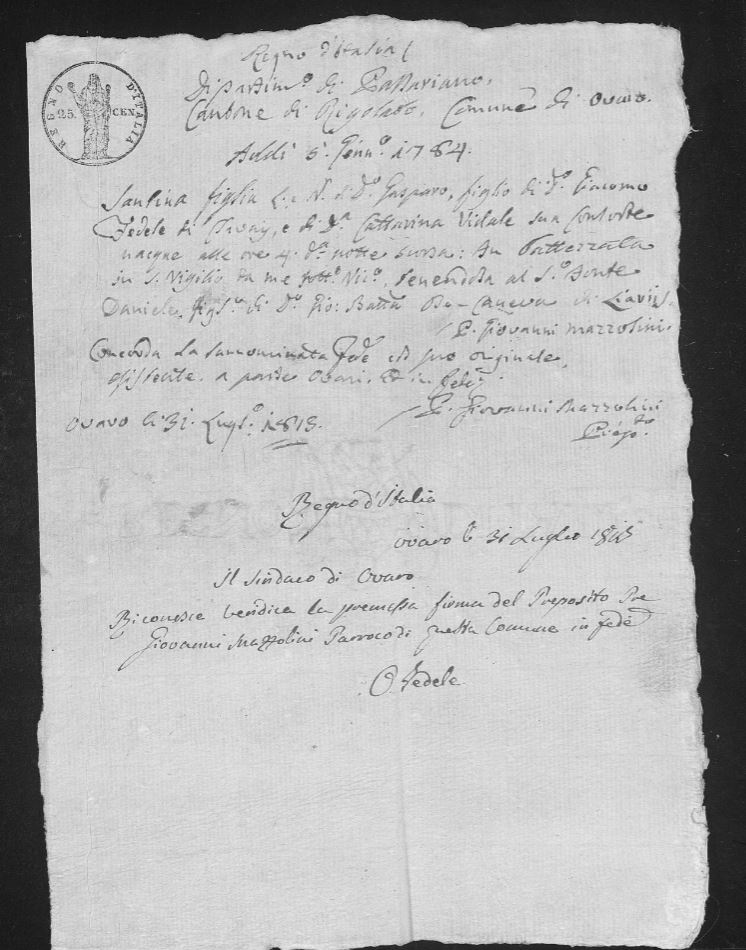 REGNO D'ITALIA
25. CEN.
Regno d'Italia
Dipartim.o di Passariano,
Cantone di Rigolato, Comune di Ovaro.
Addì 5. Genn.o 1784.
Santina figlia L. e N. di D.o Gasparo, figlio di D.o Giacomo
Fedele di e di D.a Cattarina Vidale sua Consorte
nacque alle ore 4. d.a notte scorsa: fu Battezzata
in S. Vigilio da me sott.o Vic.o, tenendola al S.o Fonte
Daniele figl.o di D.o Gio: Batta Da-Caneva di Liariis.
P. Giovanni Mazzolini.
Concorda la sunnominata Fede col suo originale
esistente a parte Ovari. Et in fede
Ovaro li 31. Lugl.o 1813.
P. Giovanni Mazzolini
Prép.to
Regno d'Italia
Ovaro li 31 Luglio 1813
Il Sindaco di Ovaro
Riconosce veridica la premessa firma del Preposito Pre
Giovanni Mazzolini Parroco di questa Comune in fede
O. Fedele